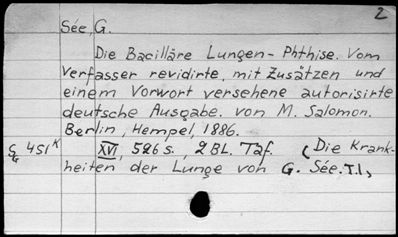 2
Sée, G.
Die Bacilläre Lungen-Phthise. Vom
Verfasser revidirte, mit Zusätzen und
einem Vorwort versehene autorisirte
deutsche Ausgabe. von M. Salomon.
Berlin, Hempel, 1886.
451 K XVI, 526 S., 2 BL. Taf. (Die Krank-
heiten der Lunge von G. Sée. T.1,